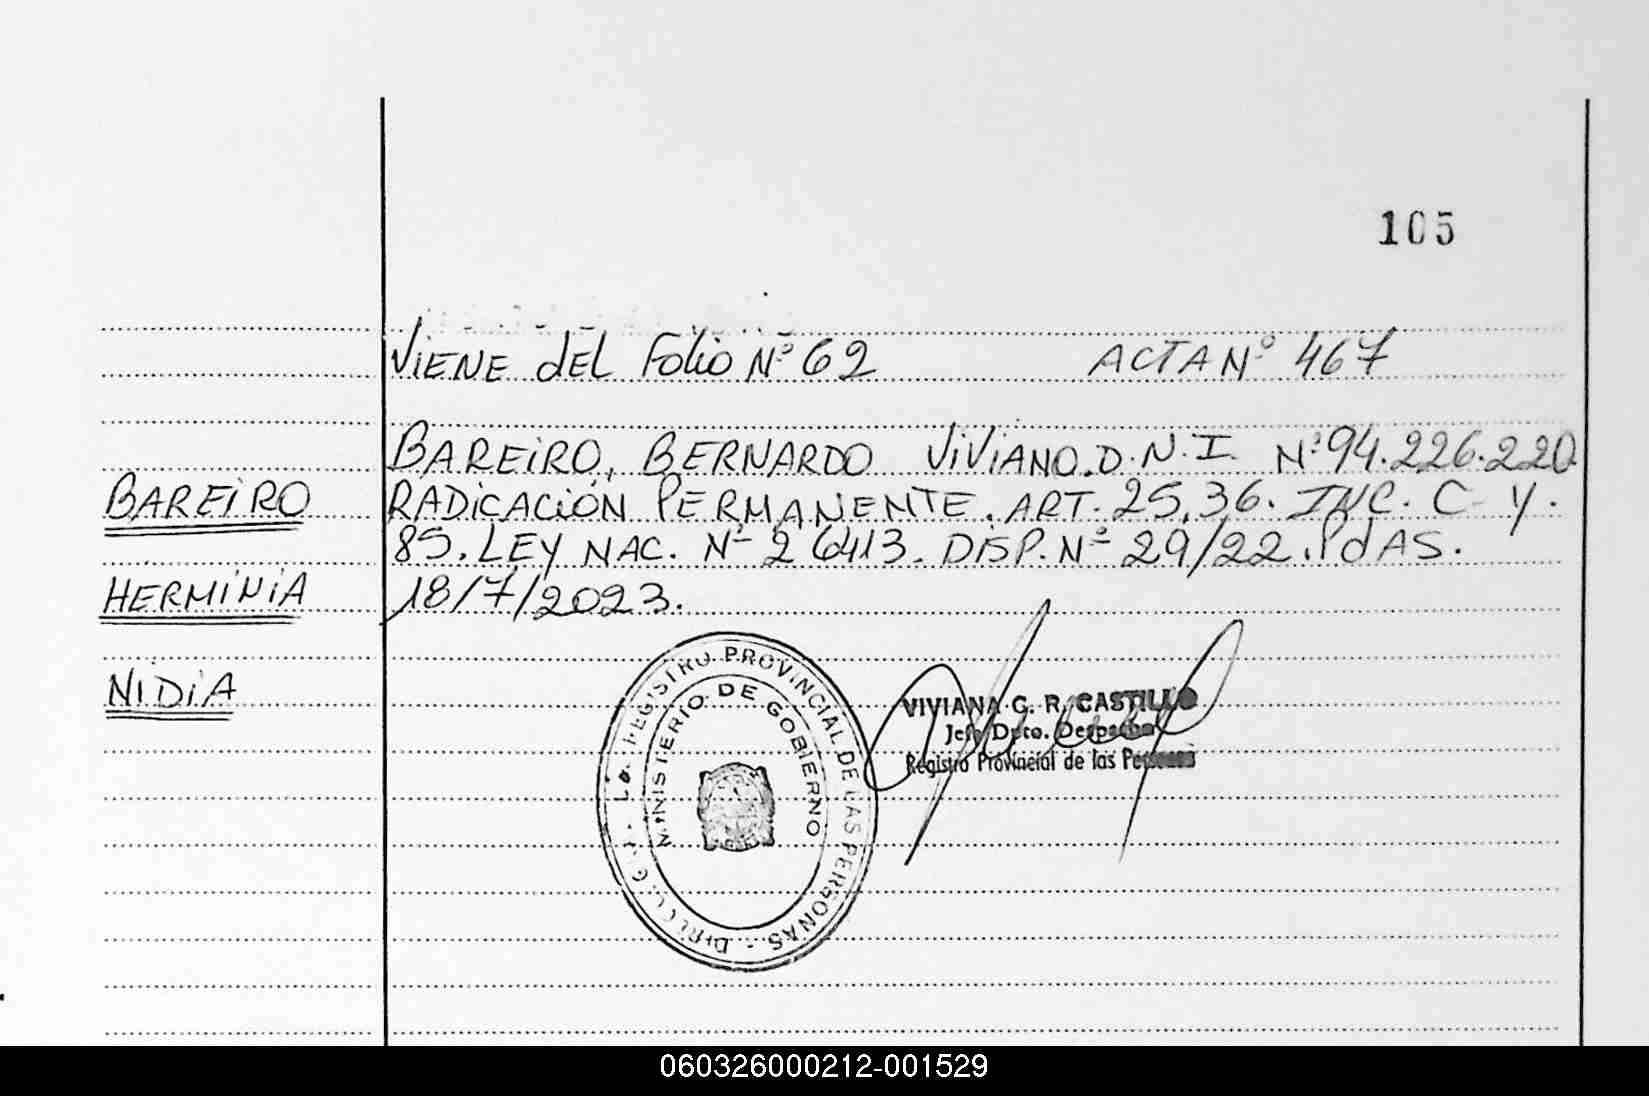 105
Viene del Folio Nº 62 ACTA Nº 467
BAREIRO, BERNARDO VIVIANO. D.N.I. Nº 94.226.220
BAREIRO
RADICACIÓN PERMANENTE. ART. 25, 36. INC. C Y.
85. LEY NAC. Nº 26413. DISP. Nº 29/22. Pdas.
HERMINIA
18/7/2023.
NIDIA
REGISTRO PROVINCIAL DE LAS PERSONAS
MINISTERIO DE GOBIERNO
VIVIANA G. R. CASTILLO
Jefe Dpto. Despacho
Registro Provincial de las Personas
060326000212-001529